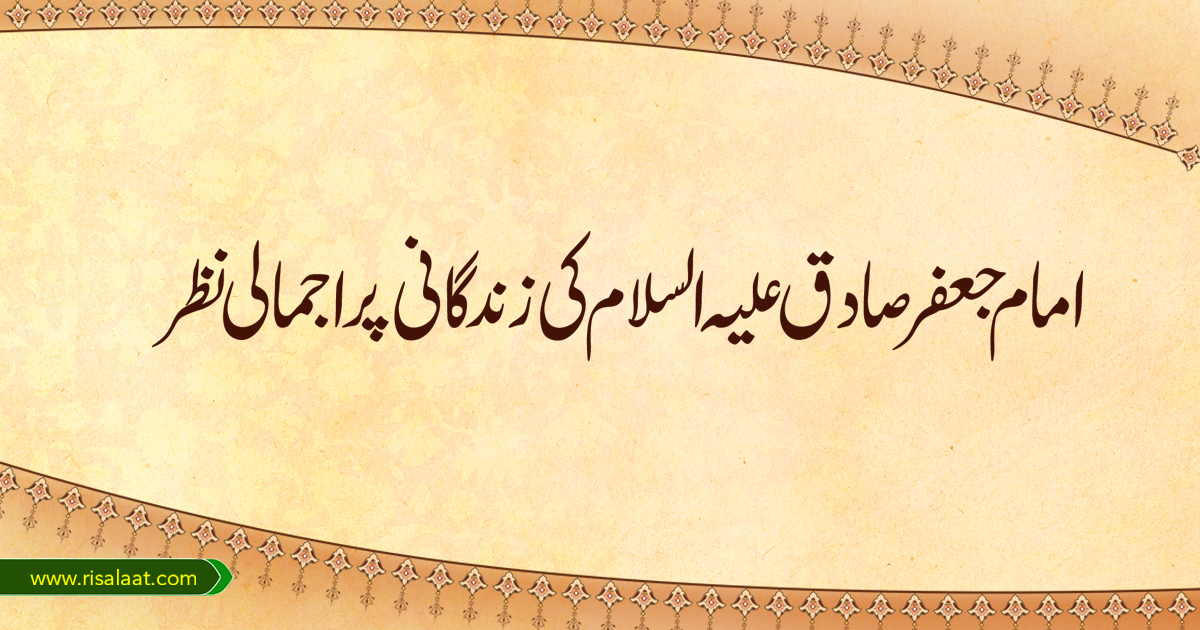 امام جعفر صادق علیہ السلام کی زندگانی پر اجمالی نظر
www.risalaat.com